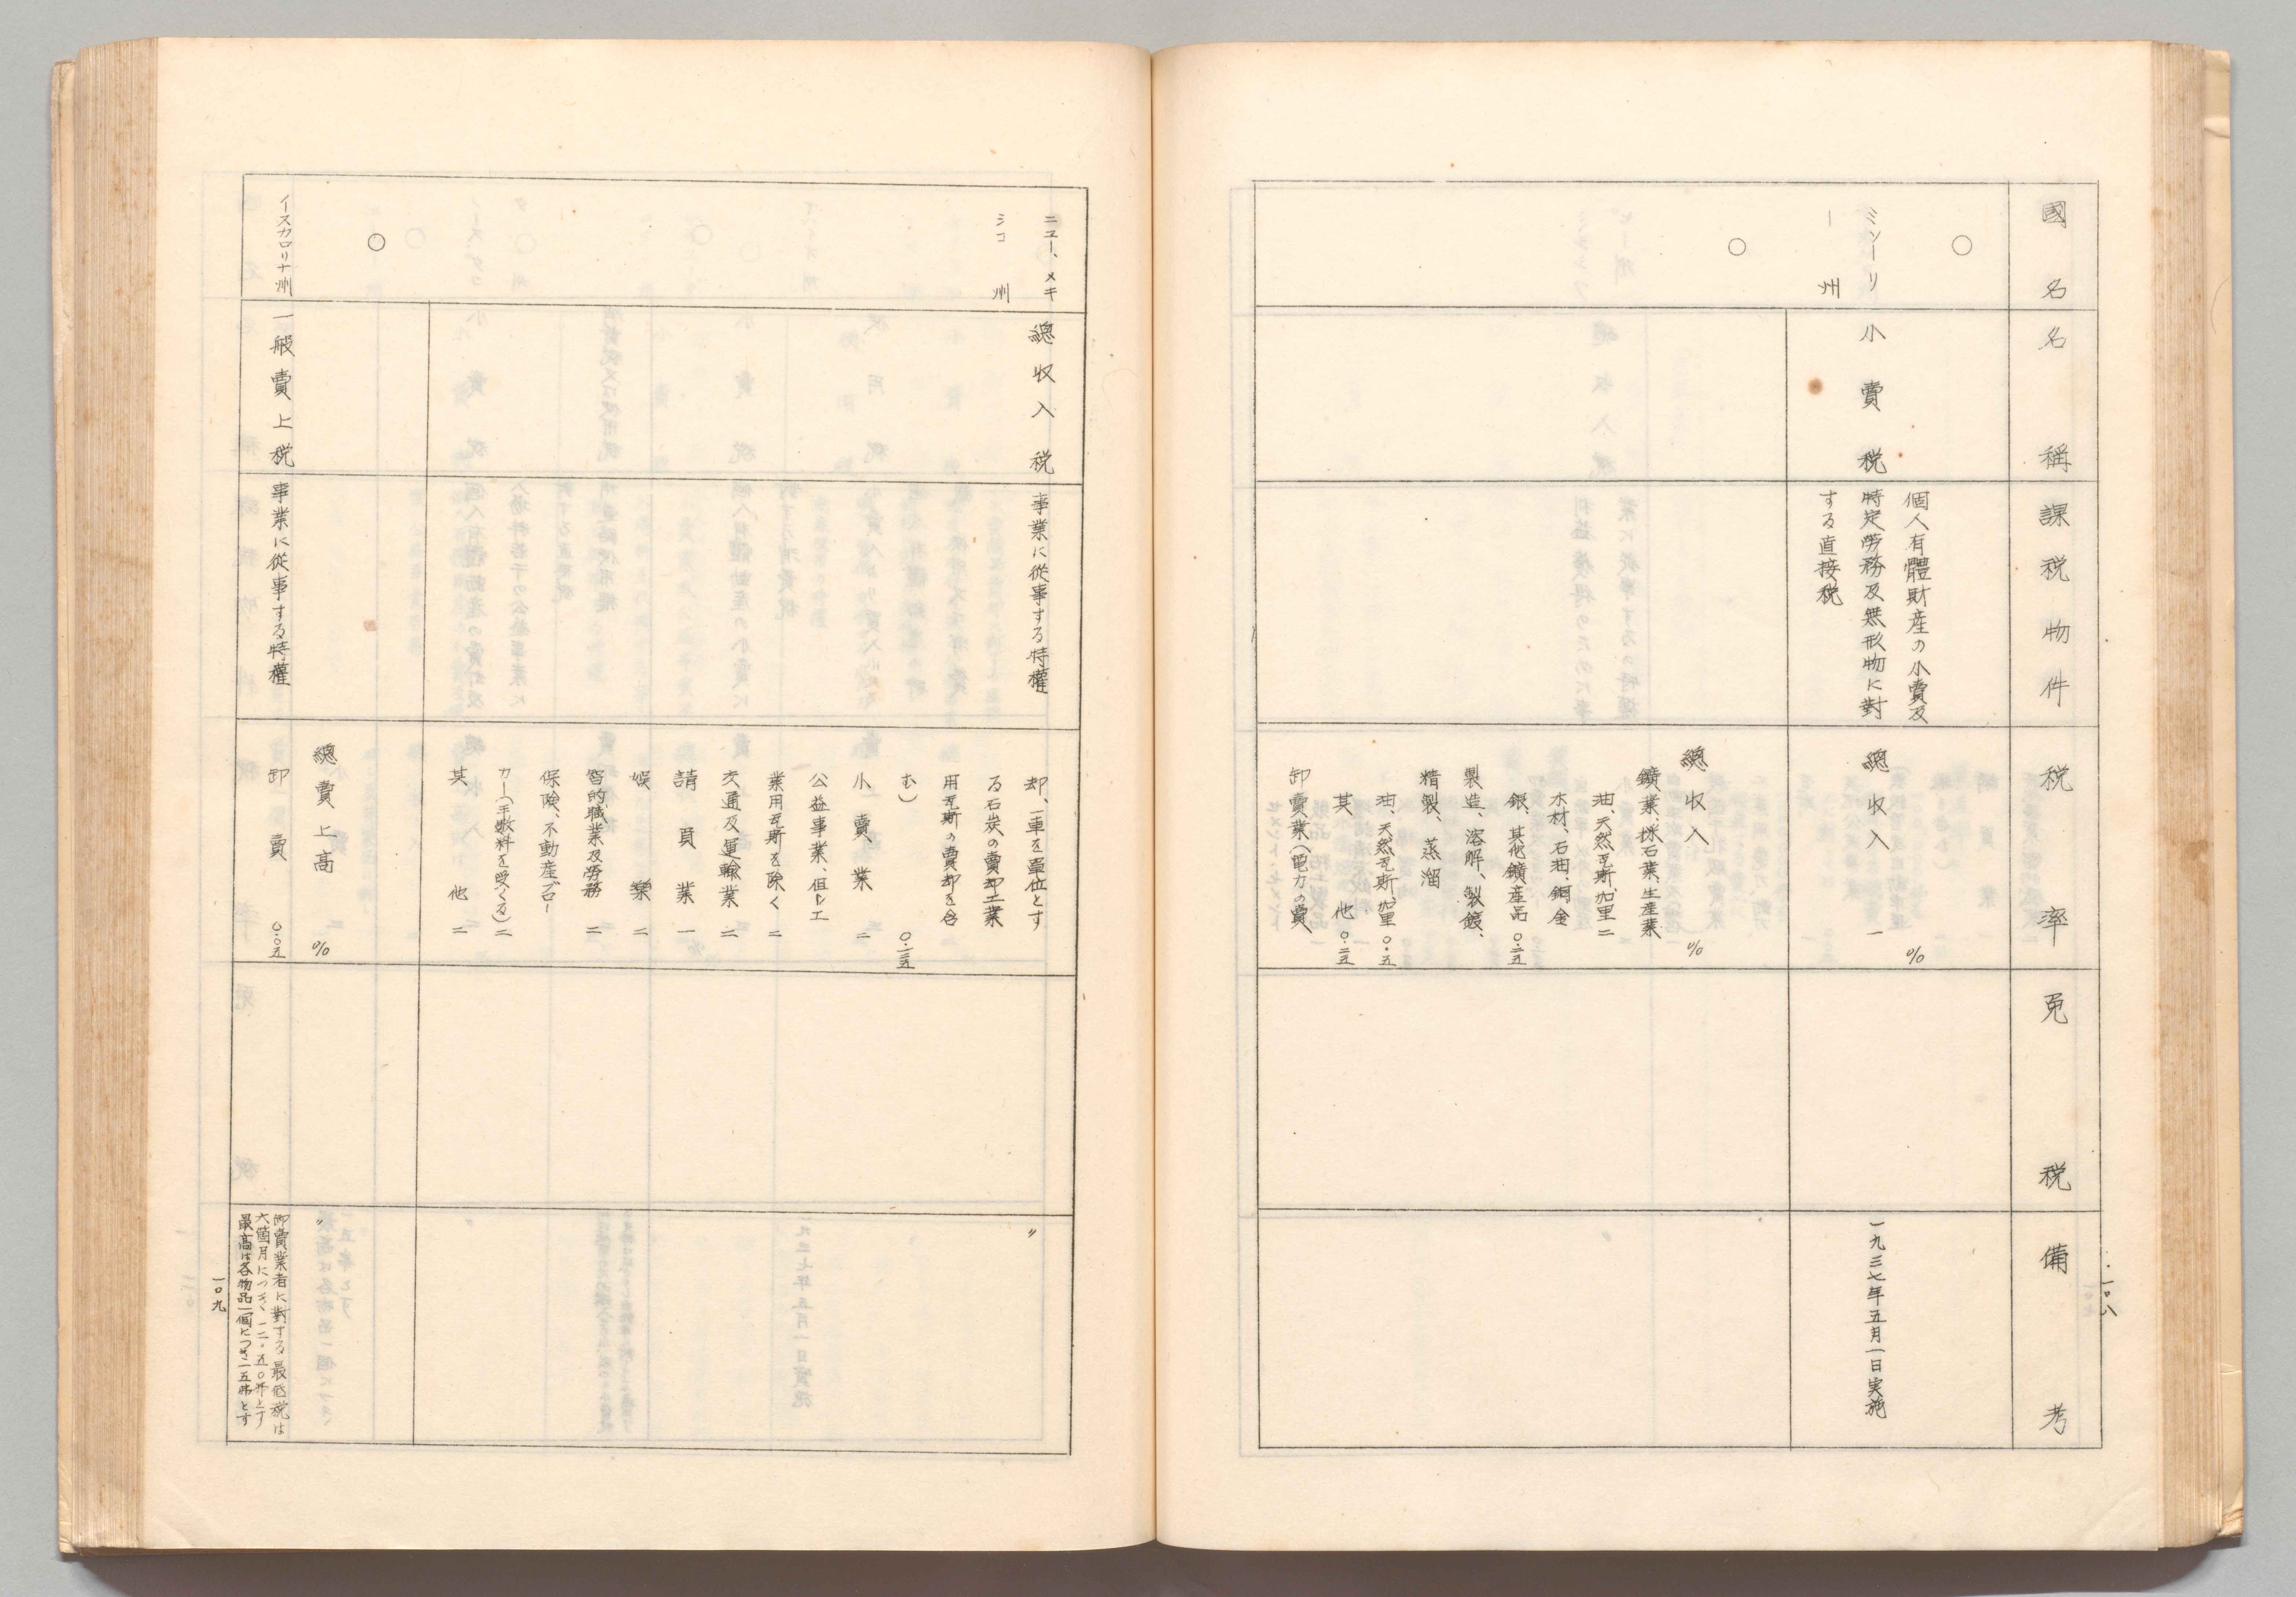 國名
名稱
課税物件
税率
免税
備考
一〇八
○
ミソーリ
ー州
小賣税
個人有體財産の小賣及
特定勞務及無形物に對
する直接税
%
總收入 一
一九三七年五月一日実施
○
總收入 %
鑛業、採石業、生産業
油、天然瓦斯、加里 二
木材、石油、銅、金
銀、其他鑛産品 〇・二五
製造、溶解、製鑛、
精製、蒸溜
油、天然瓦斯、加里 〇・五
其他 〇・二五
卸賣業(電力の賣
ニユー、メキ
シコ州
總收入税
事業に從事する特權
却、一車を單位とす
る石炭の賣却工業
用瓦斯の賣却を含
む) 〇・二五
小賣業 二
公益事業、但し工
業用瓦斯を除く 二
交通及運輸業 二
請負業 一
娯樂 二
智的職業及勞務 二
保険、不動産、ブロー
カー(手數料を受くる) 二
其他 二
〃
○
イスカロリナ州
一般賣上税
事業に從事する特權
總賣上高 %
卸賣 〇・〇五
〃
卸賣業者に對する最低税は
六箇月につき、一二・五〇弗とす
最高は各物品一個につき一五弗とす
一〇九